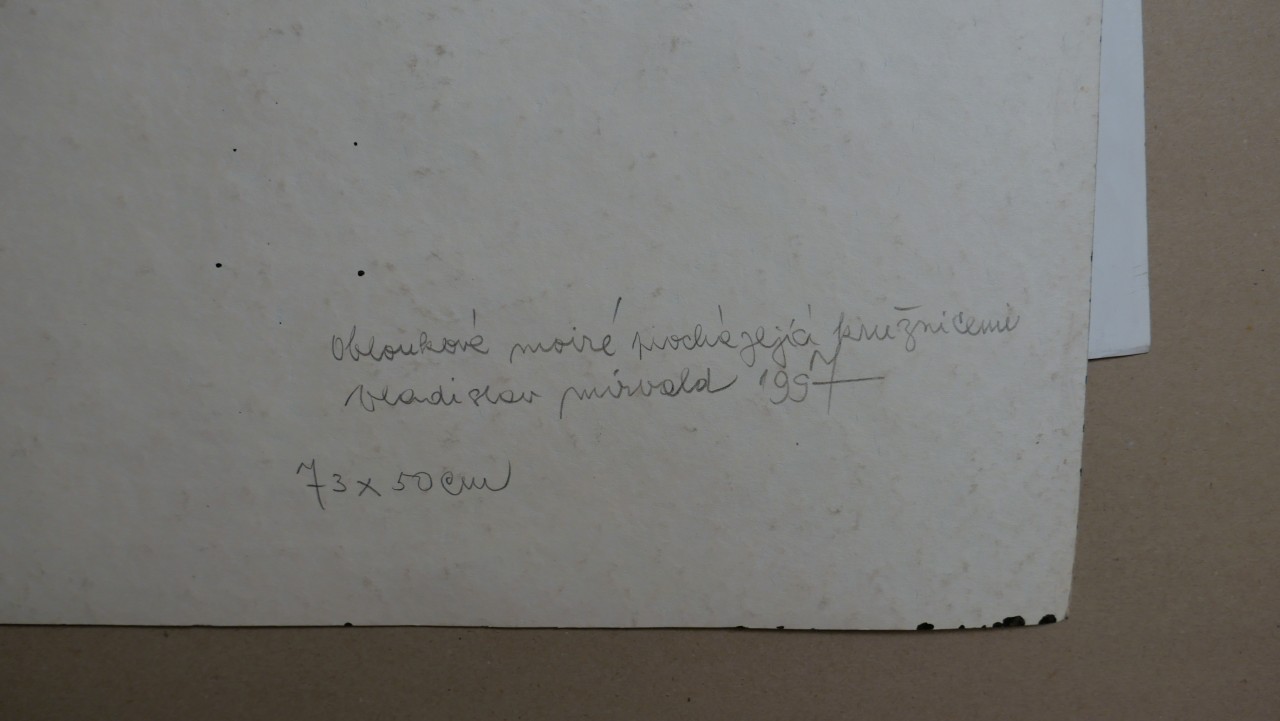 Obloukové moiré procházející kružnicemi
Vladislav mirvald 1997
73 x 50 cm